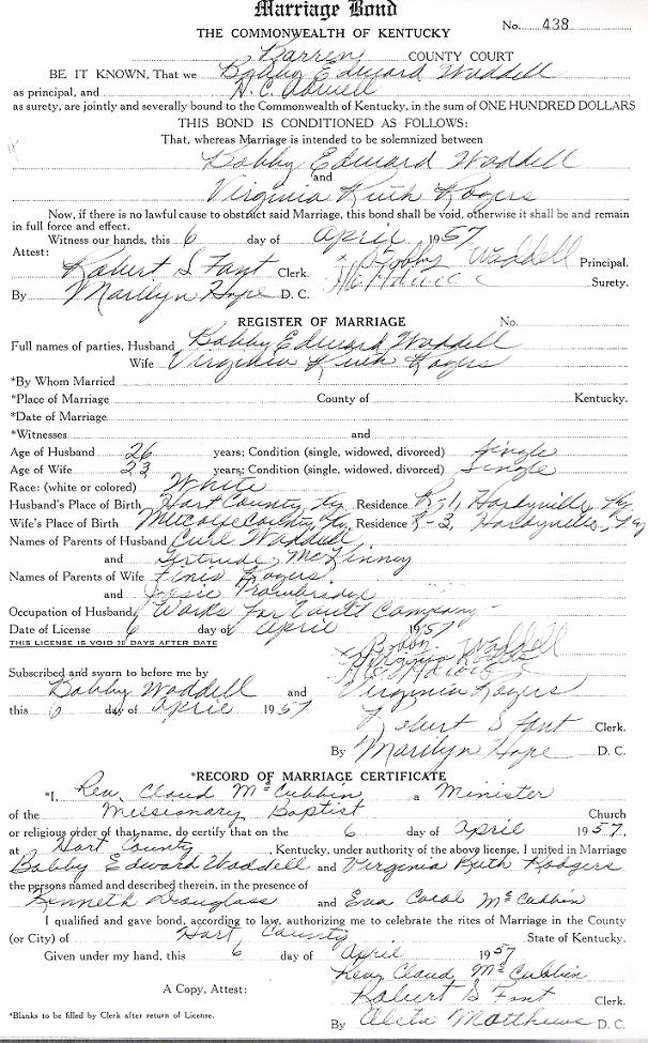 Marriage Bond
No. 438
THE COMMONWEALTH OF KENTUCKY
Barren COUNTY COURT
BE IT KNOWN, That we Bobby Edward Waddell
as principal, and H. C. Adwell
as surety, are jointly and severally bound to the Commonwealth of Kentucky, in the sum of ONE HUNDRED DOLLARS
THIS BOND IS CONDITIONED AS FOLLOWS:
That, whereas Marriage is intended to be solemnized between
Bobby Edward Waddell
and
Virginia Ruth Rogers
Now, if there is no lawful cause to obstruct said Marriage, this bond shall be void, otherwise it shall be and remain
in full force and effect.
Witness our hands, this 6 day of April 1957
Attest: x Bobby Waddell Principal.
Robert S Fant Clerk. Surety.
By Marilyn Hope D. C.
REGISTER OF MARRIAGE No.
Full names of parties, Husband Bobby Edward Waddell
Wife Virginia Ruth Rogers
*By Whom Married
*Place of Marriage County of Kentucky.
*Date of Marriage
*Witnesses and
Age of Husband 26 years; Condition (single, widowed, divorced) Single
Age of Wife 23 years; Condition (single, widowed, divorced) Single
Race: (white or colored) White
Husband's Place of Birth Hart County, Ky Residence R-1, Hardyville, Ky
Wife's Place of Birth Metcalfe County, Ky Residence R-3, Hardyville, Ky
Names of Parents of Husband Curl Waddell
and Gertrude McKinney
Names of Parents of Wife Finis Rogers
and Josie Trowbridge
Occupation of Husband Works for Vault Company
Date of License 6 day of April 1957
THIS LICENSE IS VOID 30 DAYS AFTER DATE
x Bobby Waddell
Virginia Rogers
Subscribed and sworn to before me by
Bobby Waddell and Virginia Rogers
this 6 day of April 1957
Robert S Fant Clerk.
By Marilyn Hope D. C.
*RECORD OF MARRIAGE CERTIFICATE
*I, Rev. Claud McCubbin a Minister
of the Missionary Baptist Church
or religious order of that name, do certify that on the 6 day of April 1957.
at Hart County, Kentucky, under authority of the above license, I united in Marriage
Bobby Edward Waddell and Virginia Ruth Rodgers
the persons named and described therein, in the presence of
Kenneth Douglass and Eva Coral McCubbin
I qualified and gave bond, according to law, authorizing me to celebrate the rites of Marriage in the County
(or City) of Hart County State of Kentucky.
Given under my hand, this 6 day of April 1957
Rev. Claud McCubbin
A Copy, Attest: Robert S Fant Clerk.
*Blanks to be filled by Clerk after return of License.
By Aleta Matthews D. C.